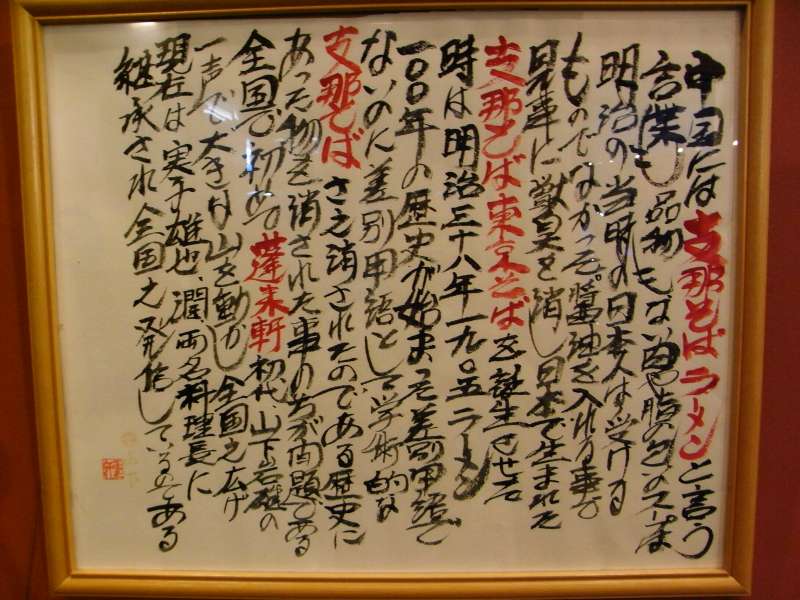 中国には支那そばラーメンと言う
言葉も品物もない肉や脂の匂のスープは
明治の当時の日本人は受ける
ものでなかった。醤油を入れる事で
見事に獣臭を消し日本で生まれた
支那そば東京そばを誕生させた
時は明治三十八年一九〇五ラーメン
一〇〇年の歴史が始まった差別用語で
ないのに差別用語として学術的な
支那そばさえ消されたのである歴史に
あった物を消された事のちが問題である
全国で初めて蓬来軒初代、山下岩雄の
一声で大きな山を動かし全国え広げ
現在は実子雄也、潤両名料理長に
継承され全国え発信しているのである